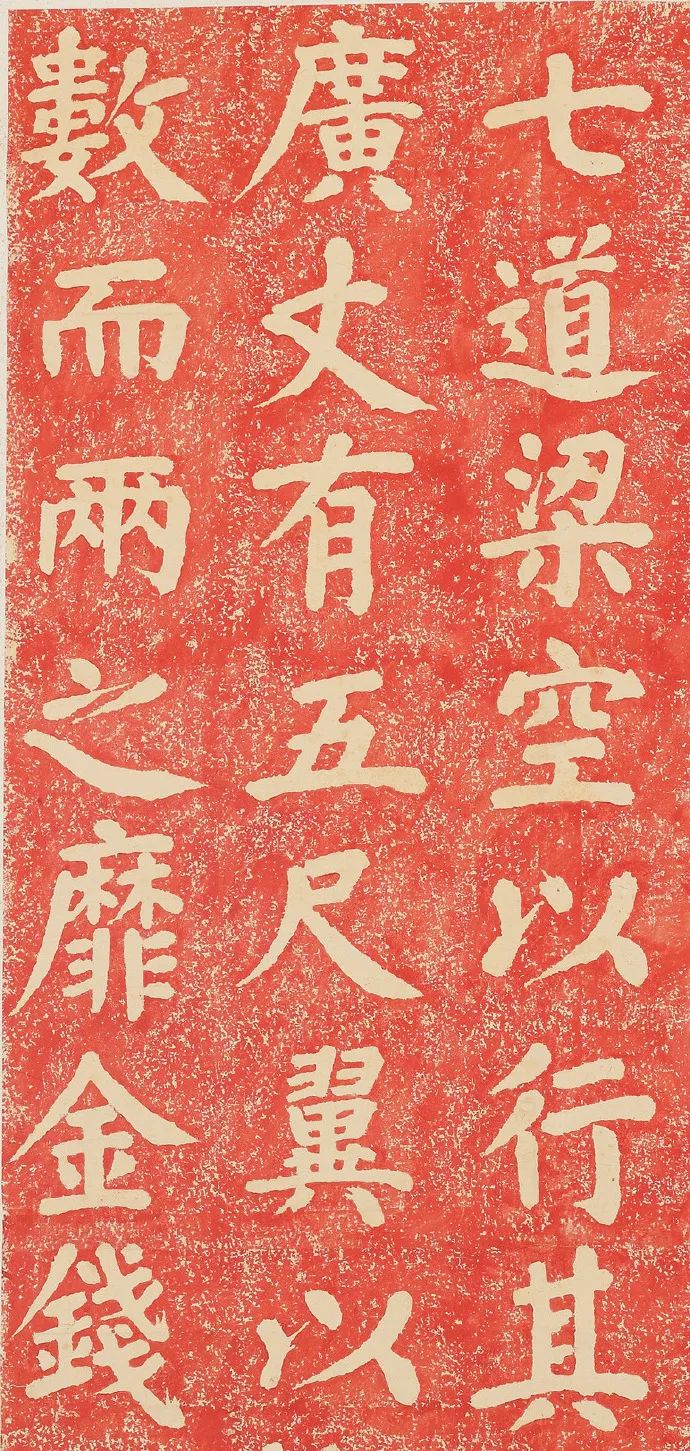 七道梁空以行其
廣丈有五尺翼以
數而兩之靡金錢